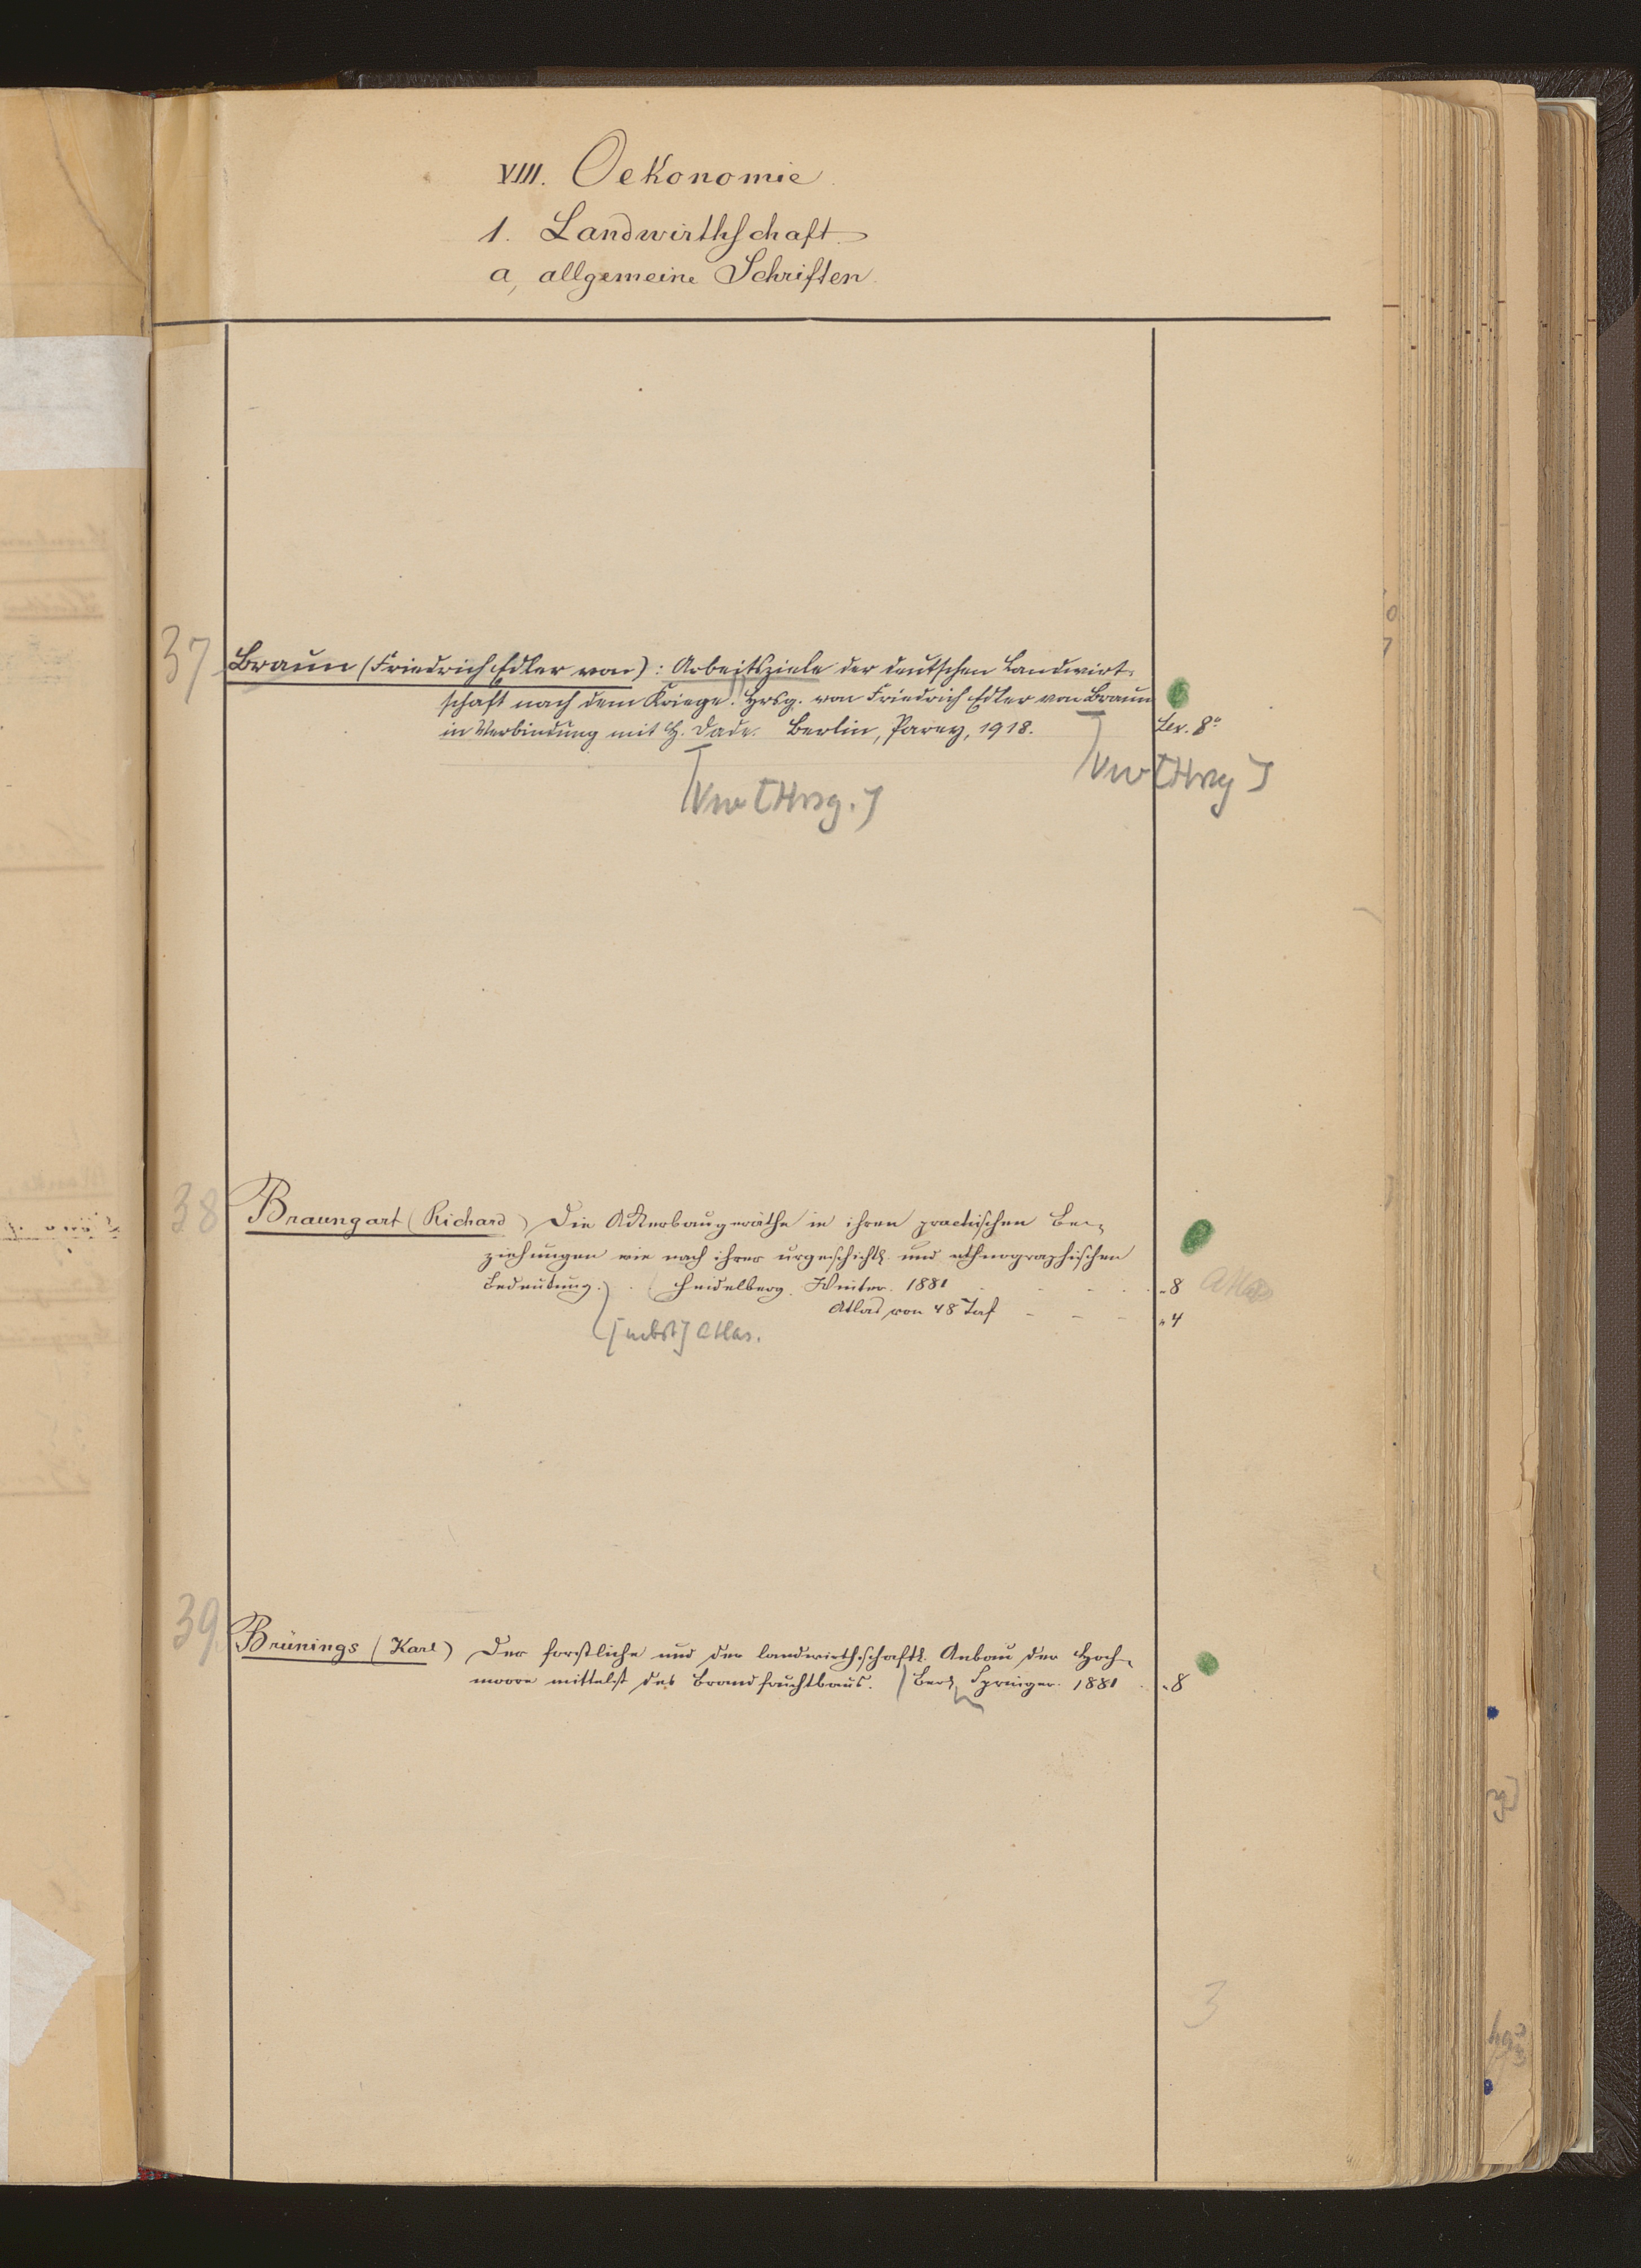 VIII. Oekonomie.
1. Landwirthschaft.
a, allgemeine Schriften.
37 Braun (Friedrich Edler von): Arbeitsziele der deutschen Landwirt-
schaft nach dem Kriege. Hrsg. von Friedrich Edler von Braun
in Verbindung mit H. Dade. Berlin, Parey, 1918. Lex. 8°
[Hrsg.]
[Hrsg.]
38 Braungart (Richard) Die Ackerbaugeräthe in ihren practischen Be-
ziehungen wie nach ihrer urgeschichtl. und ethnographischen
Bedeutung. Heidelberg. Winter. 1881 - - - „8 Atlas
Atlas von 48 Taf - - - „4
[nebst] Atlas.
39. Brünings (Karl) Der forstliche und der landwirthschaftl. Anbau der Hoch-
moore mittelst des Brandfruchtbaus. Berl. Springer. 1881 . „8
3